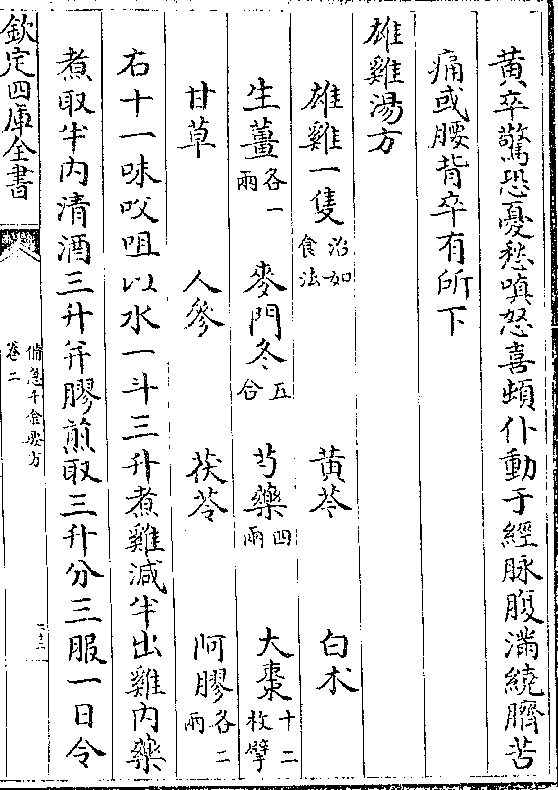 黄卒驚恐憂愁嗔怒喜頓仆動于經脉腹滿繞臍苦
痛或腰背卒有所下
雄雞湯方
雄雞一隻治如食法 黄芩 白术
生薑各一兩 麥門冬五合 芍藥四兩 大棗十二枚擘
甘草 人參 茯苓 阿膠各二兩
右十一味㕮咀以水一斗三升煮雞減半出雞内藥
煮取半内清酒三升并膠煎取三升分三服一日令
欽定四庫全書
備急千金要方
卷二